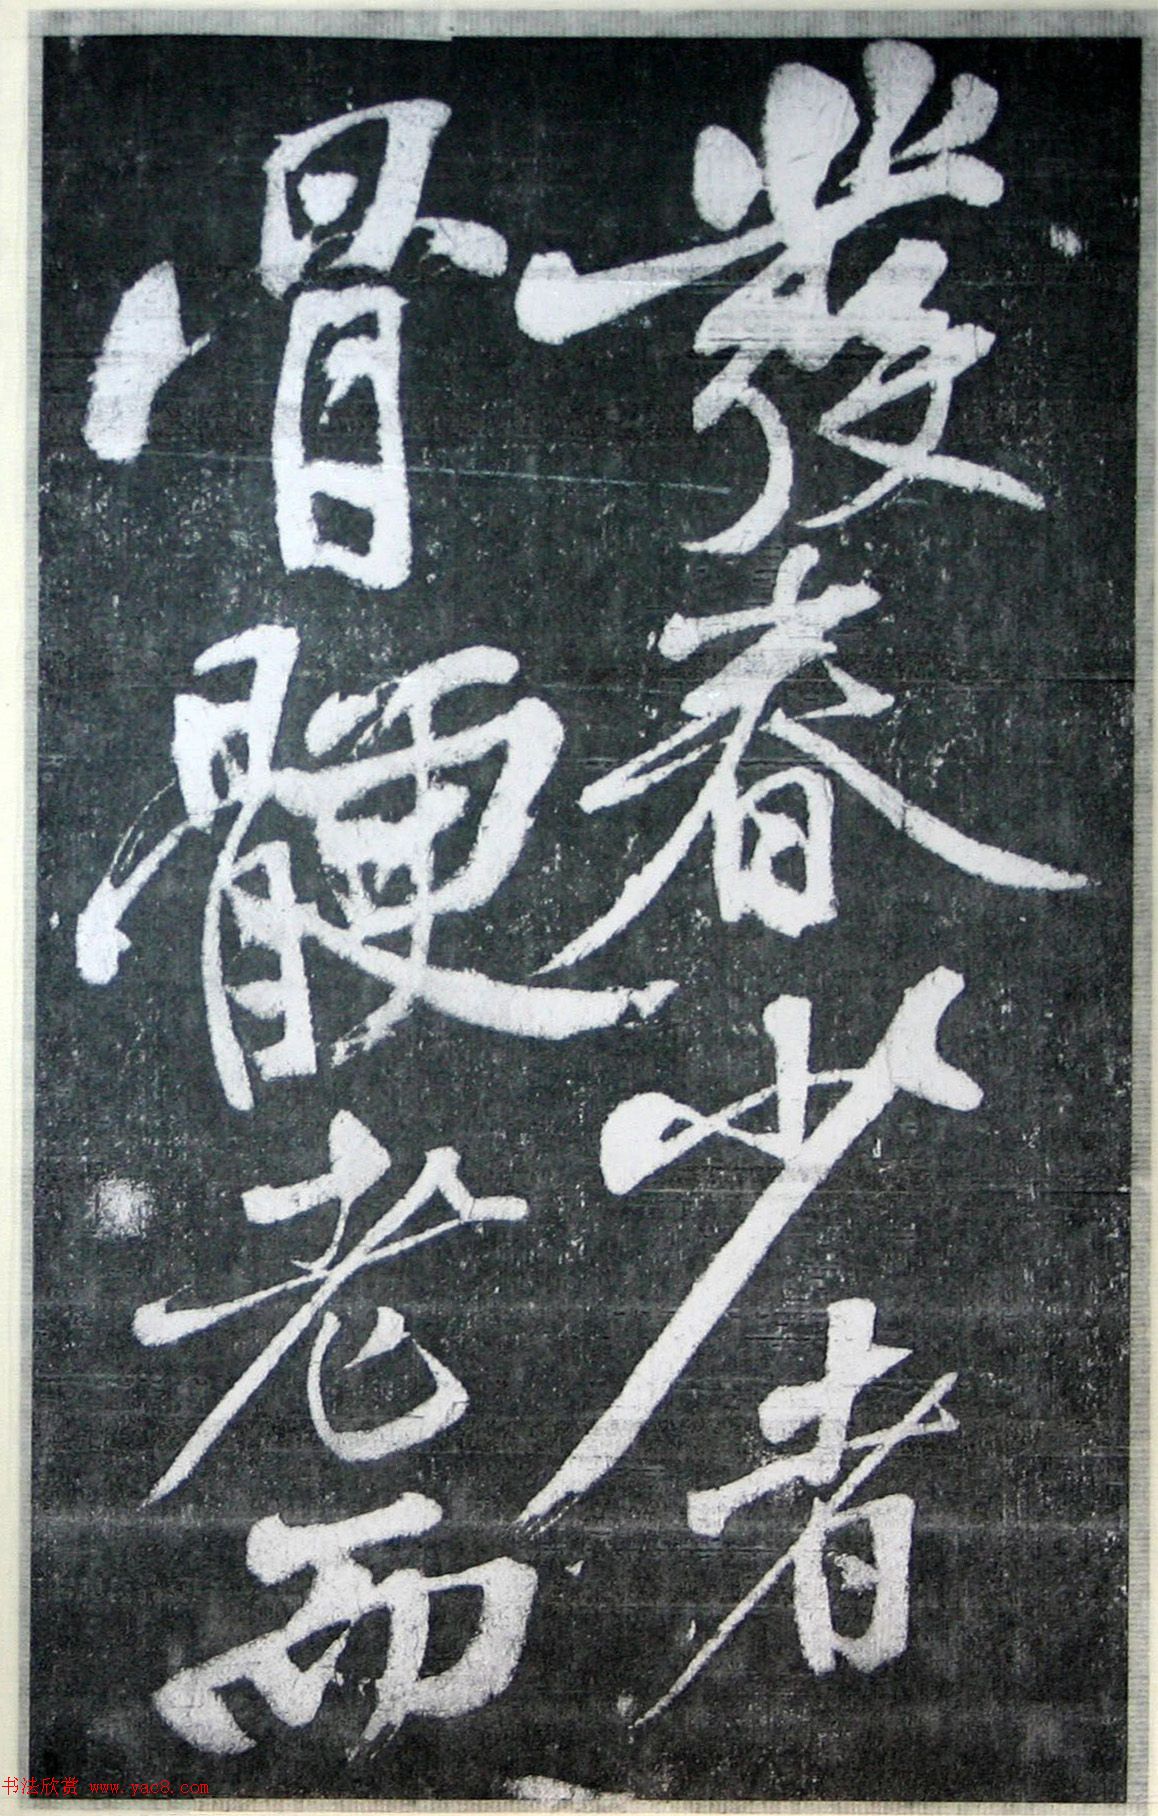 發春少者
骨鯁老而
书法欣赏 www.yac8.com